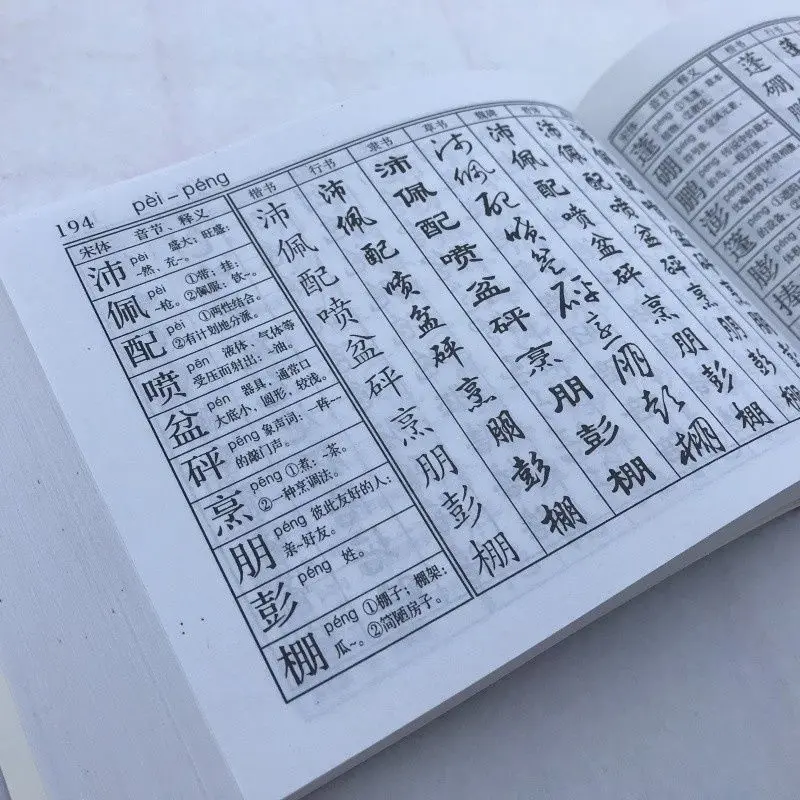 194 pèi – péng
宋体 音节、释义 楷书 行书 隶书 草书 魏碑
沛 pèi 盛大;旺盛:
~然、充~。 沛 沛 沛 沛 沛 沛
佩 pèi ①带;挂:
~枪。②佩服、钦~。 佩 佩 佩 佩 佩 佩
配 pèi ①两性结合。
②有计划地分派。 配 配 配 配 配 配
喷 pēn 液体、气体等
受压而射出:~油。 喷 喷 喷 喷 喷 喷
盆 pén 器具,通常口
大底小,圆形,较浅。 盆 盆 盆 盆 盆 盆
砰 pēng 象声词:一阵~~
的敲门声。 砰 砰 砰 砰 砰 砰
烹 pēng ①煮:~茶。
②一种烹调法。 烹 烹 烹 烹 烹 烹
朋 péng 彼此友好的人:
亲~好友。 朋 朋 朋 朋 朋 朋
彭 péng 姓。 彭 彭 彭 彭 彭 彭
棚 péng ①棚子;棚架:
瓜~。②简陋房子。 棚 棚 棚 棚 棚 棚
宋体 音节、释义 楷书 行书
蓬 péng 蓬 蓬
硼 péng 非金属元素 硼
鹏 péng 传说中的最大
的鸟:~程万里。
澎 péng
篷 péng
膨 péng
捧 pěng